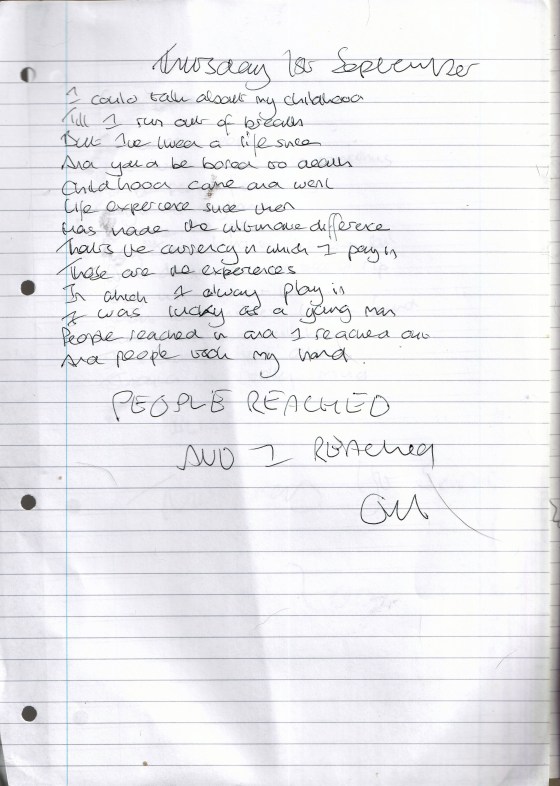 Thursday 1st September
I could talk about my childhood
Till I run out of breath
But I've lived a life since
And you'd be bored to death
Childhood came and went
Life experience since then
Has made the ultimate difference
That's the currency in which I pay in
These are the experiences
In which I always play in
I was lucky as a young man
People reached in and I reached out
And people took my hand
PEOPLE REACHED
AND I REACHED
Out